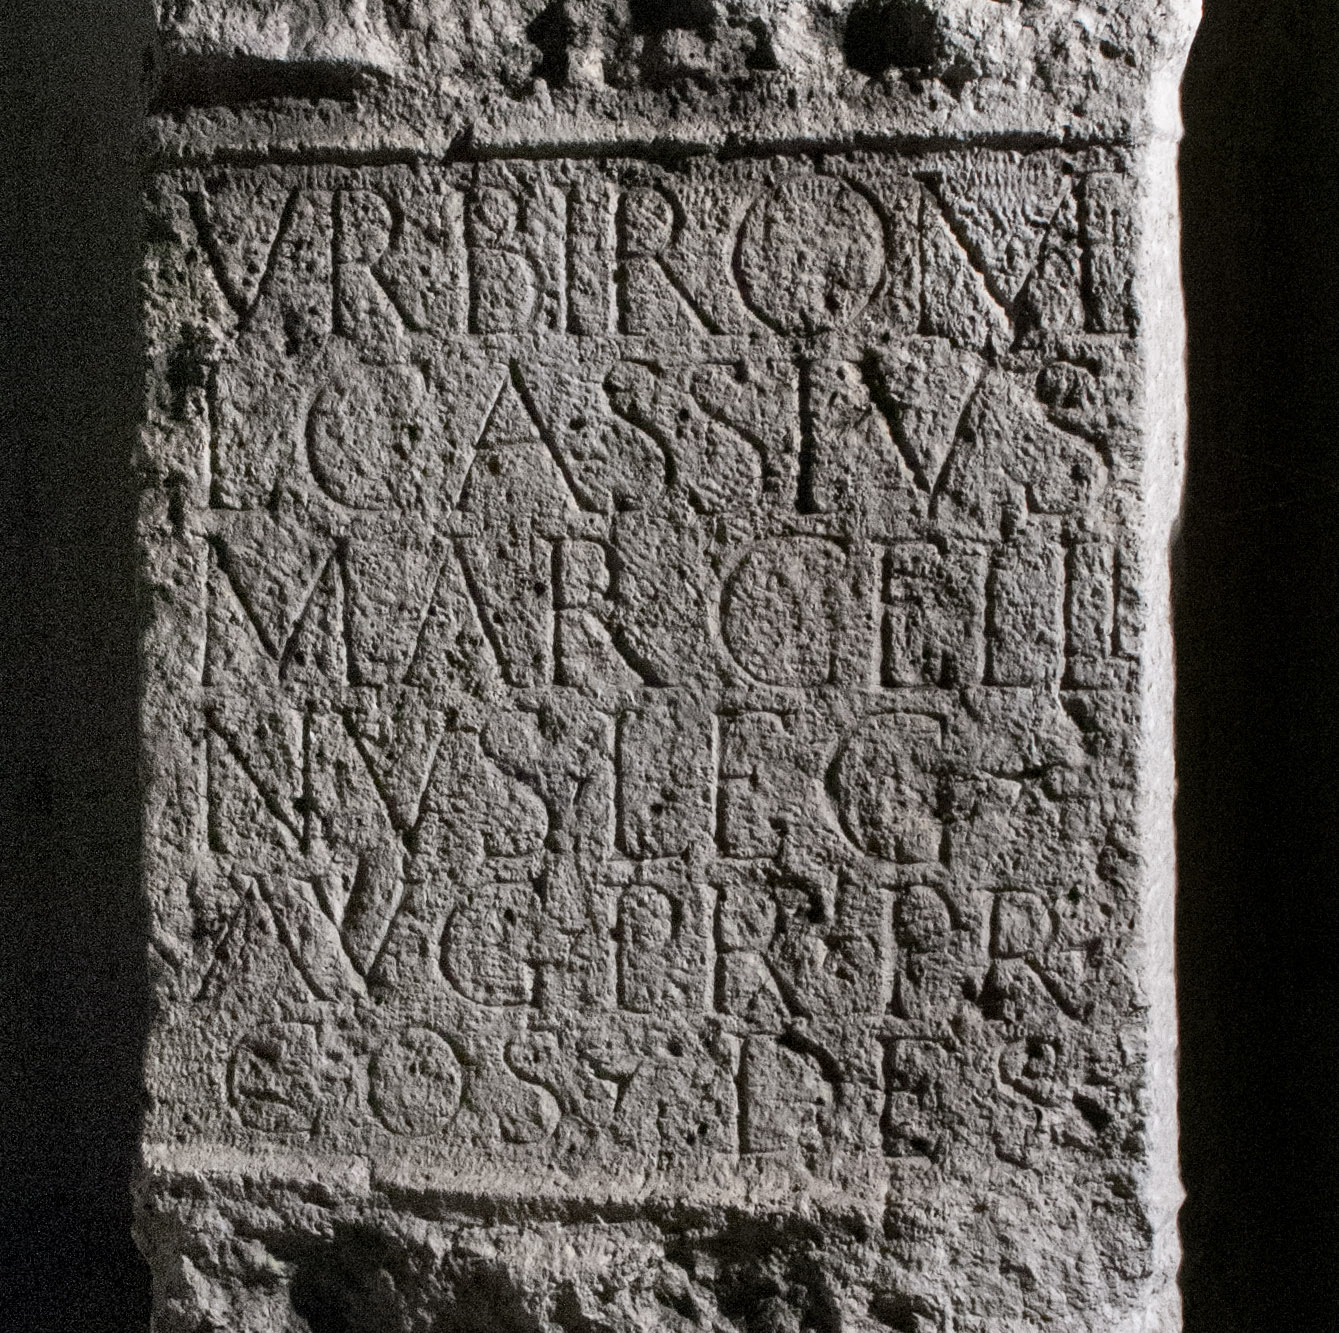 VRBI ROMAE
L CASSIVS
MARCELLI
NVS LEG
AVG PR PR
COS DES